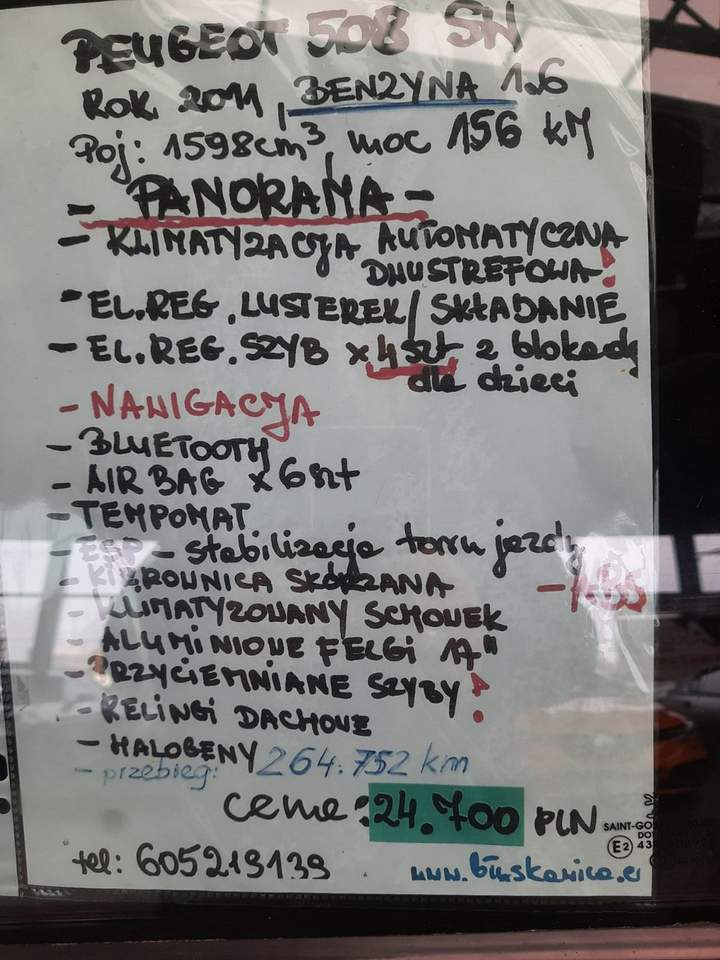 PEUGEOT 508 SW
ROK 2011, BENZYNA 1.6
Poj: 1598cm³, moc 156 KM
- PANORAMA -
- KLIMATYZACJA AUTOMATYCZNA
DWUSTREFOWA!
- EL.REG. LUSTEREK/SKŁADANIE
- EL.REG.SZYB x 4szt z blokadą
dla dzieci
- NAWIGACJA
- BLUETOOTH
- AIR BAG x 6szt
- TEMPOMAT
- ESP - stabilizacja toru jazdy
- KIEROWNICA SKÓRZANA
- ABS
- KLIMATYZOWANY SCHOWEK
- ALUMINIOWE FELGI 17"
- PRZYCIEMNIANE SZYBY!
- RELINGI DACHOWE
- HALOGENY
- przebieg: 264.752 km
cena: 24.700 PLN
tel: 605219139
SAINT-GO
E2 43